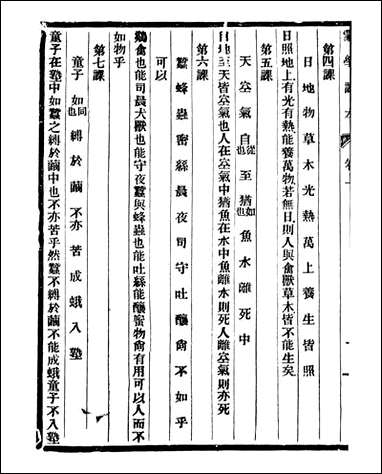 第四課
日地物草木光熱萬上養生皆照
日照地上有光有熱能養萬物若無日則人與禽獸草木皆不能生矣
第五課
天空氣自從也至猶如也魚水離死中
自地至天皆空氣也人在空氣中猶魚在水中魚離水則死人離空氣則亦死
第六課
蠶蜂蟲密絲晨夜司守吐釀尙不如乎
可以
雞禽也能司晨犬獸也能守夜蠶與蜂蟲也能吐絲能釀蜜物尙有用可以人而不
如物乎
第七課
童子如同也縛於繭不亦苦成蛾入塾
童子在塾中如蠶之縛於繭中也不亦苦乎然蠶不縛於繭不能成蛾童子不入塾